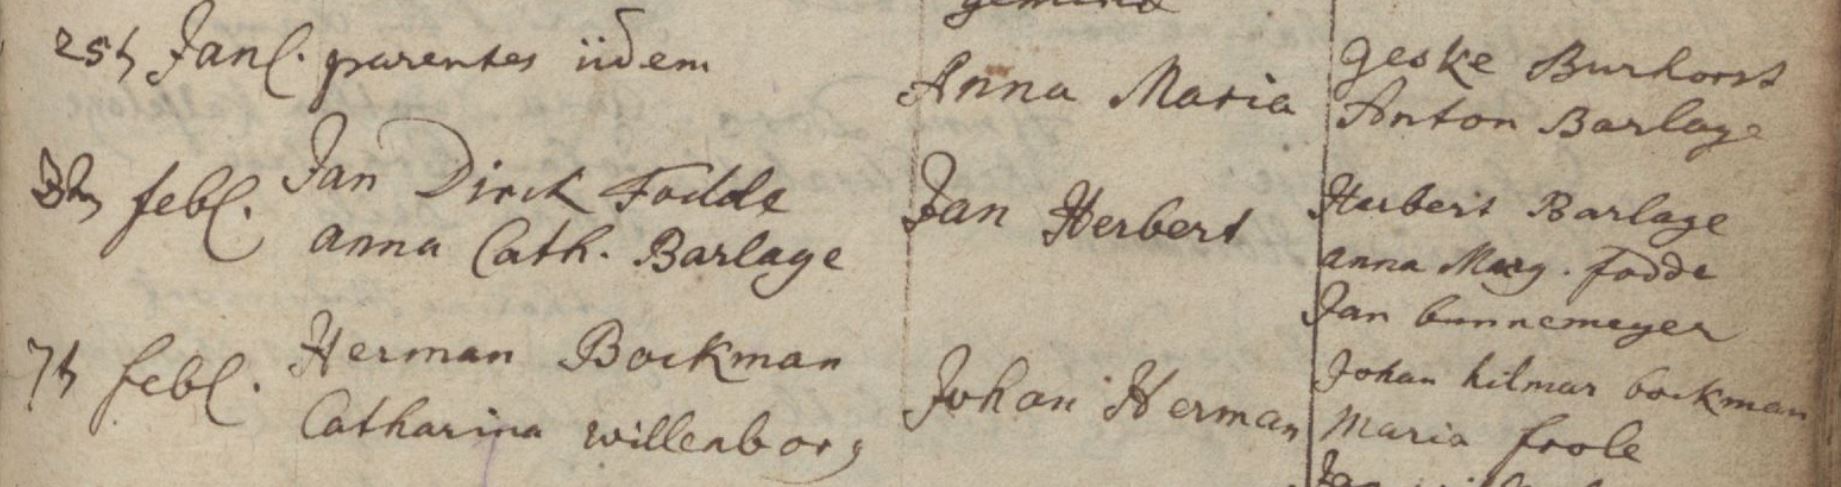 gemina
25t Janl. parentes iidem
Anna Maria
Geske Burhorst
Anton Barlage
3t febl. Jan Dirck Fodde
anna Cath. Barlage
Jan Herbert
Herbert Barlage
anna Marg. fodde
Jan bunnemeyer
7t febl. Herman Bockman
Catharina willenborg
Johan Herman
Johan hilmar bockman
Maria frole
Jan